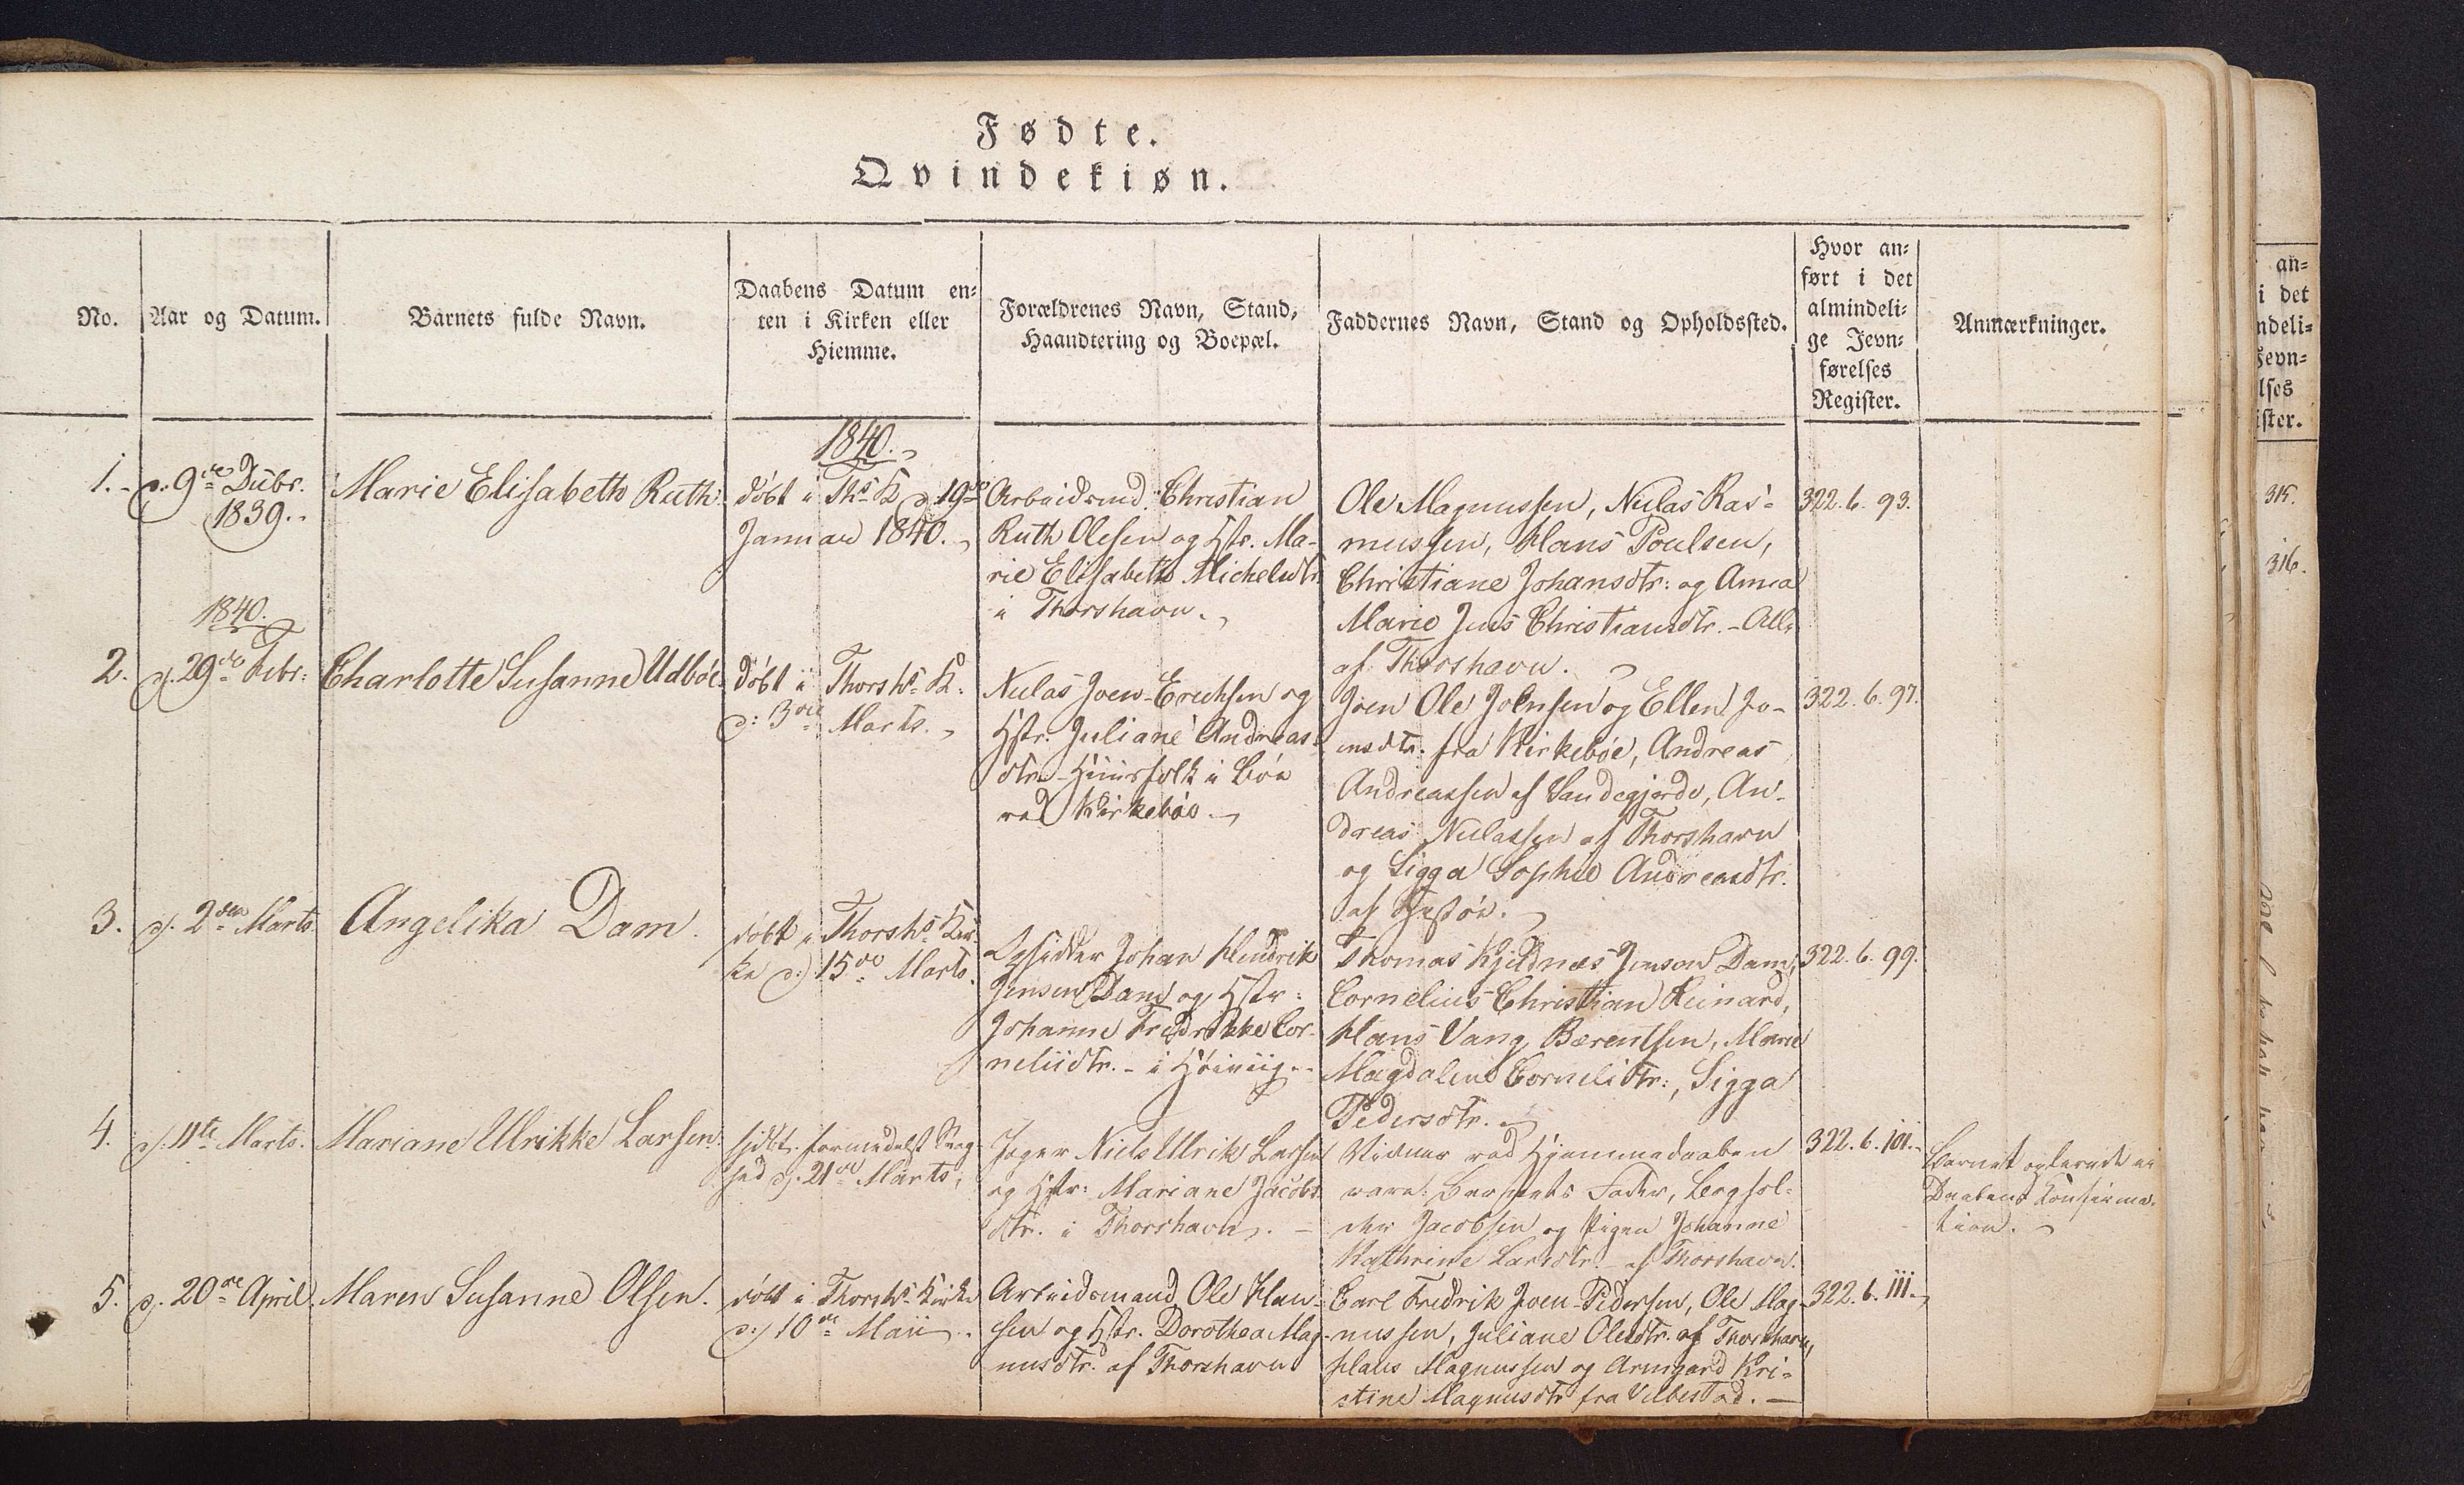 Fødte.
Qvindekiøn.
No.
Aar og Datum.
Barnets fulde Navn.
Daabens Datum en-
ten i Kirken eller
Hiemme.
Forældrenes Navn, Stand,
Haandtering og Boepæl.
Faddernes Navn, Stand og Opholdssted.
Hvor an-
ført i det
almindeli-
ge Jevn-
førelses
Register.
Anmærkninger.
1.
d. 9de Dcbr.
1839.
Marie Elisabeth Ruth.
1840.
døbt i Ths K d. 19de
Januar 1840.
Arbeidsmd. Christian
Ruth Olesen og Hstr. Ma-
rie Elisabeth Michelsdtr.
i Thorshavn.
Ole Magnussen, Niclas Ras-
mussen, Hans Poulsen,
Christiane Johansdtr: og Anna
Marie Jens Christiansdtr. - Alle
af Thorshavn.
322. 6. 93.
1840.
2.
d. 29de Febr:
Charlotte Susanne Udbøe.
døbt i Thorshs K:
d: 3die Marts.
Niclas Joen-Erichsen og
Hstr. Juliane Andreas-
dtr. - Huusfolk i Bøe
ved Kirkebøe.
Joen Ole Joensen og Ellen Jo-
ensdtr. fra Kirkebøe, Andreas
Andreassen af Sandegjerde, An-
dreas Niclassen af Thorshavn
og Sigga Sophie Andreasdtr.
af Hestøe.
322. 6. 97.
3.
d. 2den Marts.
Angelika Dam.
døbt i Thorshs Kir-
ke d: 15de Marts.
Opsidder Johan Hendrik
Jensen Dam og Hstr:
Johanne Fredrikke Cor-
neliidtr. - i Hoiviig.
Thomas Kjeldnæs Jensen Dam,
Cornelius Christian Reinard,
Hans Vang Bærentsen, Marie
Magdalene Cornelidtr:, Sigga
Pedersdtr.
322. 6. 99.
4.
d. 11te Marts.
Mariane Ulrikke Larsen.
hjdbt. formedelst Svag-
hed d. 21de Marts.
Jæger Niels Ulrik Larsen
og Hstr: Mariane Jacobs-
dtr. i Thorshavn.
Vidner ved Hjemmedaaben
vare: Barnets Fader,
Jacobsen og Pigen Johanne
Kathrine Larsdtr. - af Thorshavn.
322. 6. 101.
Barnet oplevede ei
Daabens Konfirma-
tion.
5.
d. 20de April.
Maren Susanne Olsen.
døbt i Thorshs Kirke
d: 10de Maii.
Arbeidsmand Ole Han-
sen og Hstr. Dorothea Mag-
nusdtr. af Thorshavn
Carl Fredrik Joen-Pedersen, Ole Mag-
nussen, Juliane Olesdtr. af Thorshavn,
Hans Magnussen og Armgard Kri-
stine Magnusdtr fra Velbestad.
322. 6. 111.
an-
i det
ndeli-
Jevn-
lses
ister.
315.
316.